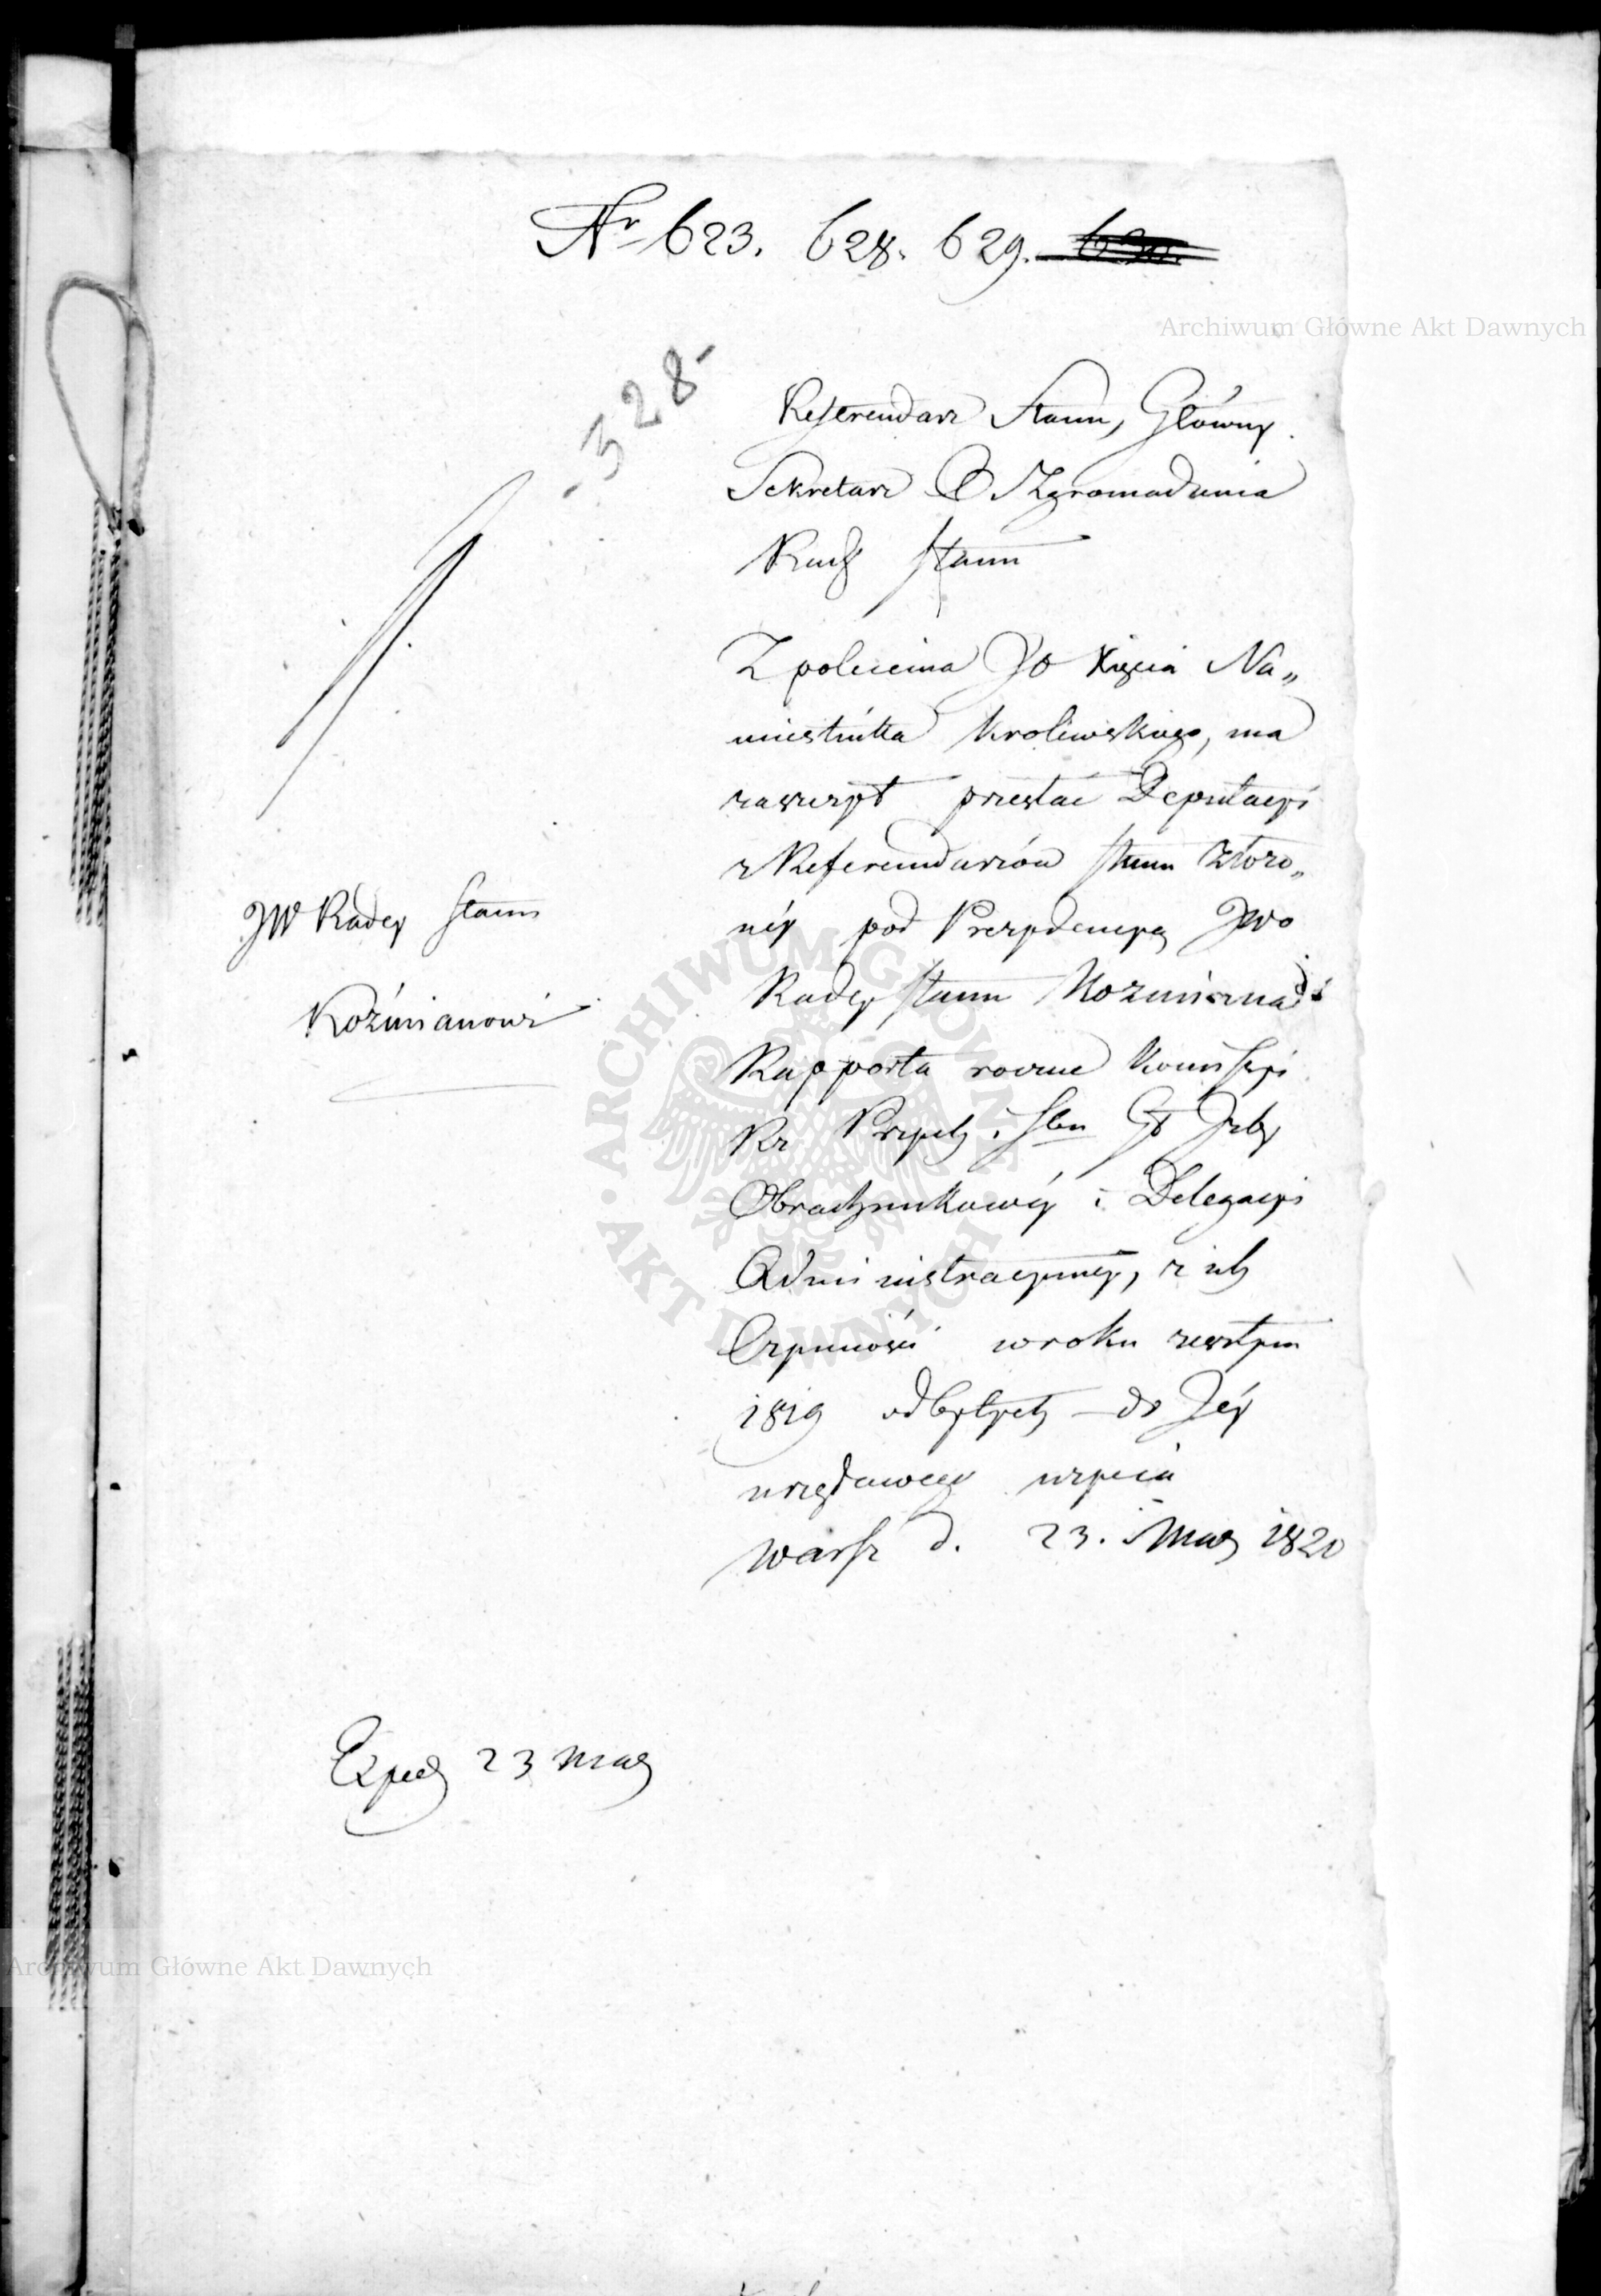 Nr 623. 628. 629. 630.
Archiwum Główne Akt Dawnych
- 328 -
Referendarz Stanu, Główny
Sekretarz O Zgromadzenia
Rady Stanu
Z polecenia JO Xięcia Na„
miestnika Krolewskiego, ma
zaszczyt przesłać Deputacyi
z Referendarzów Stanu złożo„
néy pod Prezydencyą JWo
Radcy Stanu Kozmiana
JW Radcy Stanu
Koźmianowi
Rapporta roczne Kommissyi
Rz Przych i Skbu Gł Izby
Obrachunkowéy i Delegacyi
Administracyiney, z ich
Czynności w roku zeszłym
1819 odbytych – do Jéy
urzędowego użycia
Warsz d. 23. Maja 1820
Exped 23 Maja
Archiwum Główne Akt Dawnych
ARCHIWUM GŁÓWNE · AKT DAWNYCH ·